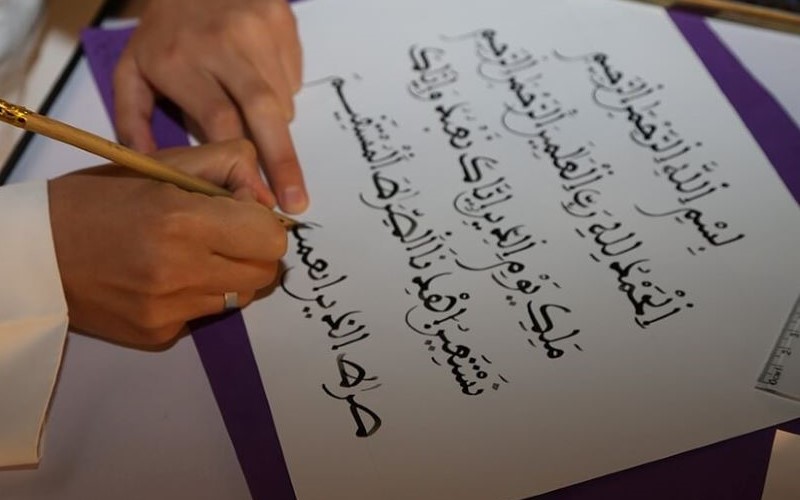 بِسْمِ اللَّهِ الرَّحْمَنِ الرَّحِيمِ
الْحَمْدُ لِلهِ رَبِّ الْعَلَمِينَ الرَّحْمَنِ الرَّحِيمِ
مَلِكِ يَوْمِ الدِّينِ إِيَّاكَ نَعْبُدُ وَإِيَّاكَ
نَسْتَعِينُ اهْدِنَا الصِّرَطَ الْمُسْتَقِيمَ
صرط الذين انعمت